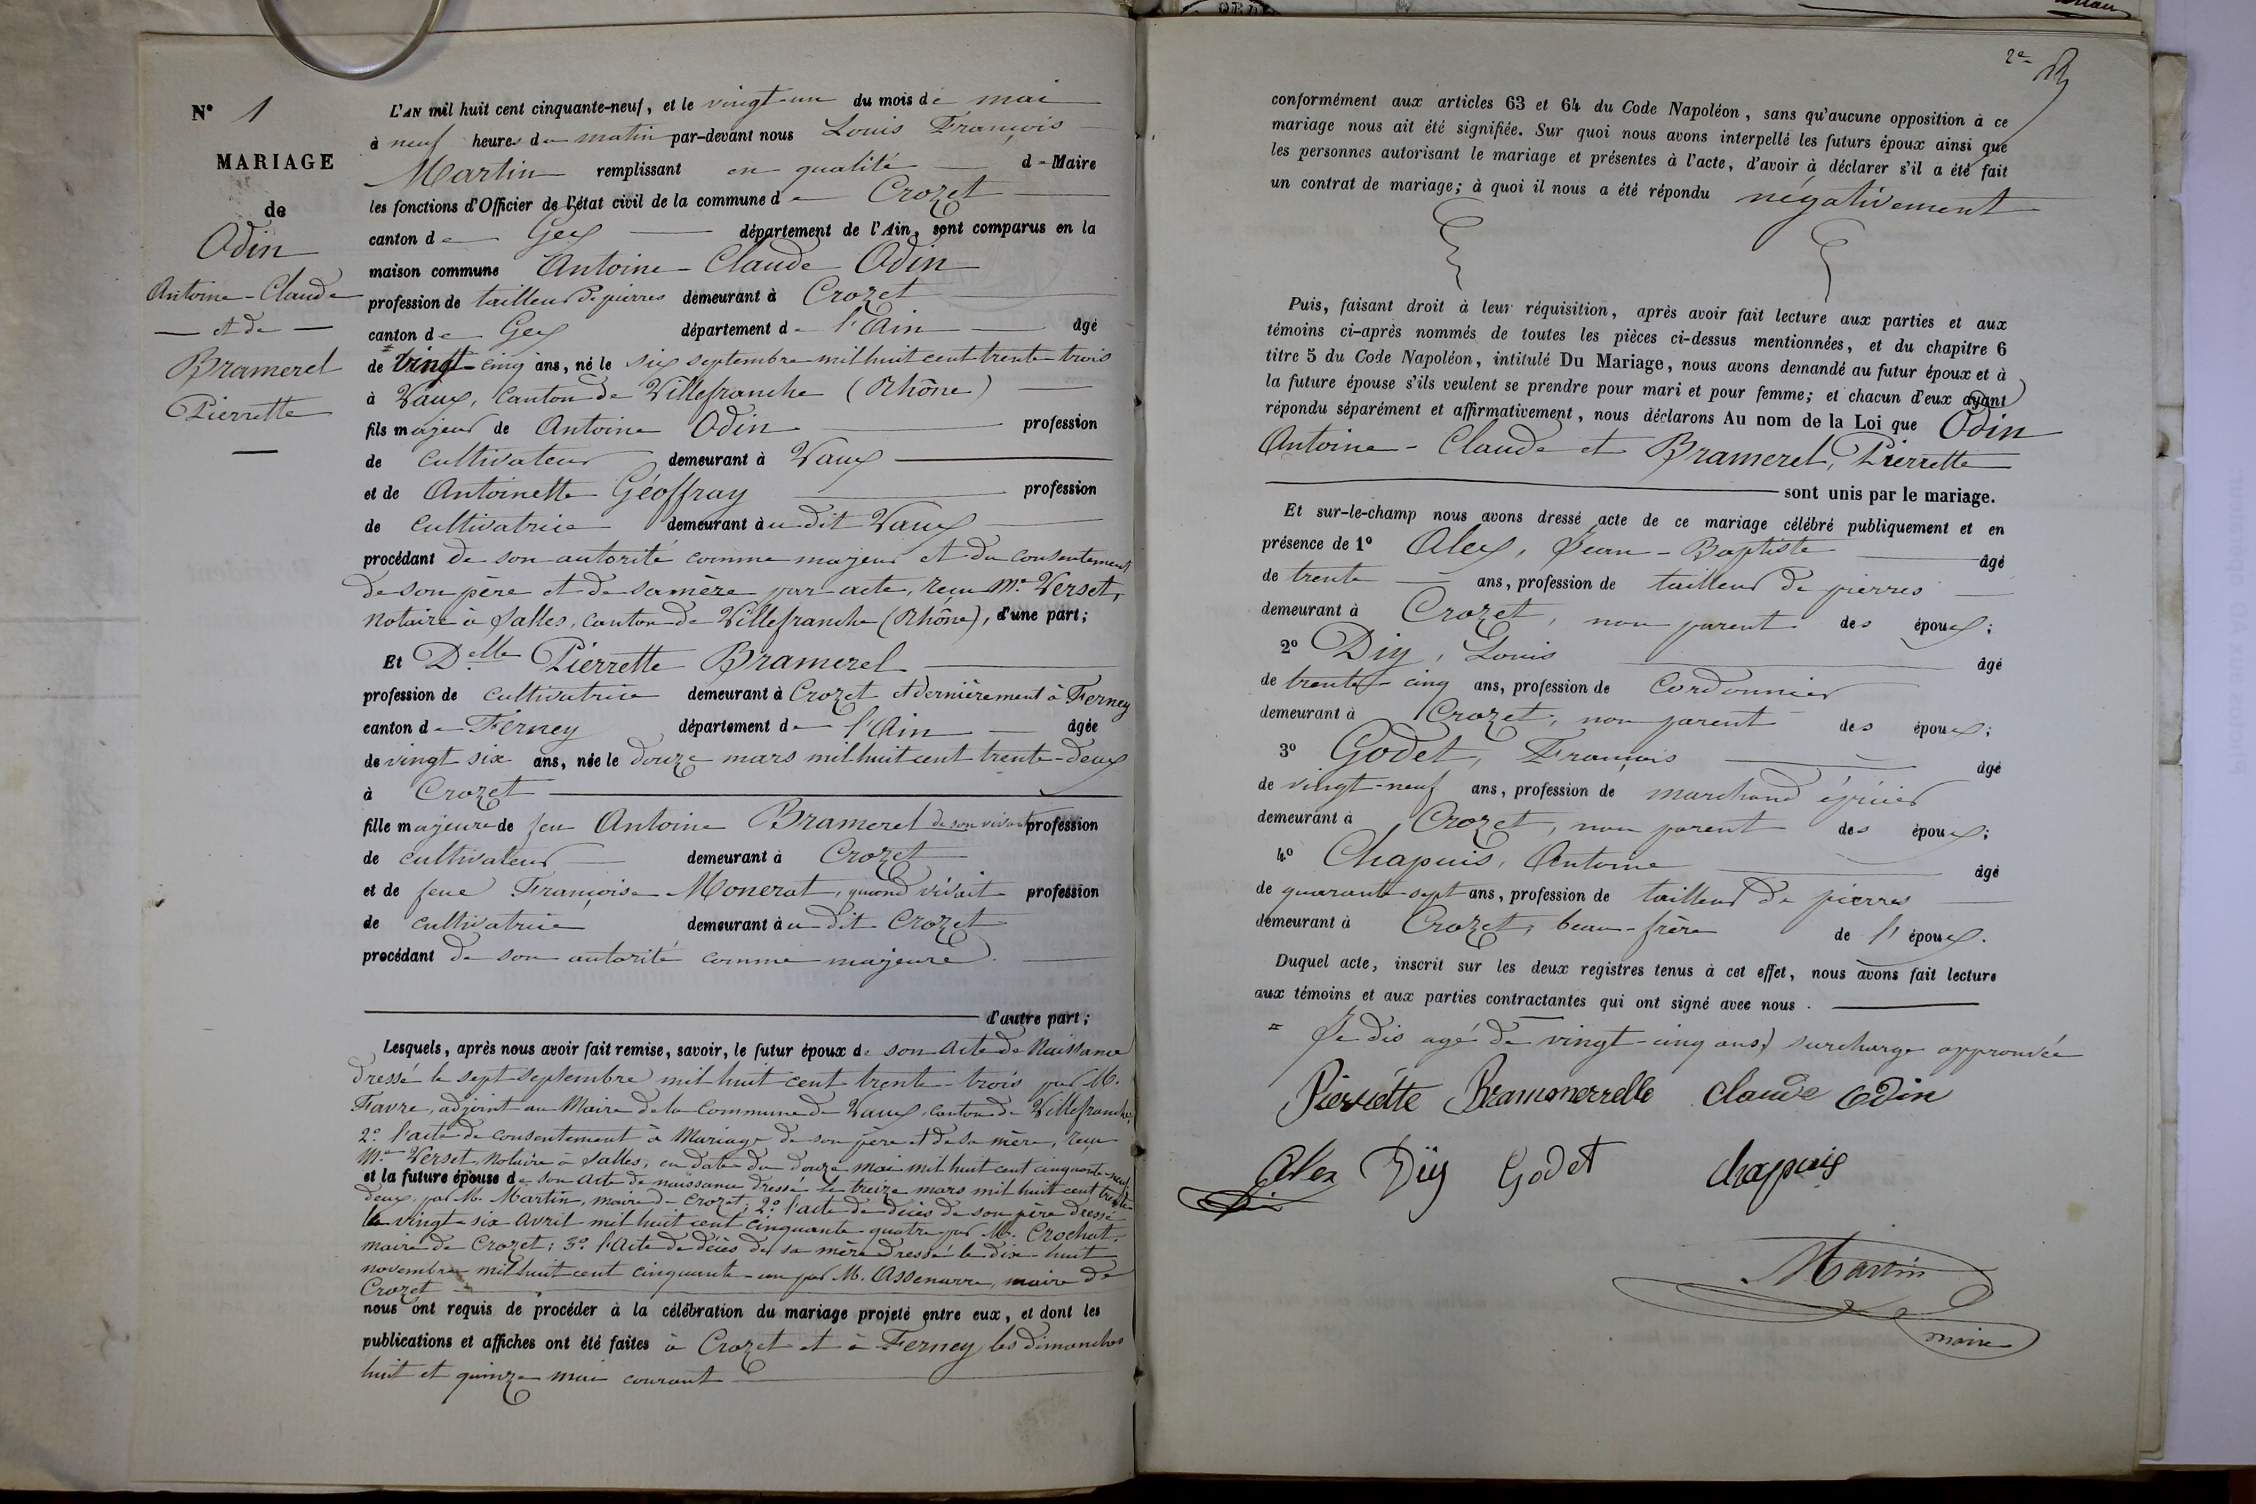 N° 1
MARIAGE
de
Odin
Antoine-Claude
— et de —
Bramerel
Pierrette
L'AN mil huit cent cinquante-neuf, et le vingt-un du mois de mai
à neuf heures du matin par-devant nous Louis François
Martin remplissant en qualité de Maire
les fonctions d'Officier de l'état civil de la commune de Crozet
canton de Gex département de l'Ain, sont comparus en la
maison commune Antoine-Claude Odin
profession de tailleur de pierres demeurant à Crozet
canton de Gex département de l'Ain âgé
de = vingt-cinq ans, né le six septembre mil huit cent trente-trois
à Vaux, Canton de Villefranche (Rhône)
fils majeur de Antoine Odin profession
de cultivateur demeurant à Vaux
et de Antoinette Géoffray profession
de cultivatrice demeurant à u dit Vaux
procédant de son autorité comme majeur et du consentement
de son père et de sa mère par acte, reçu Me Verset,
notaire à Salles, canton de Villefranche (Rhône), d'une part;
Et Delle Pierrette Bramerel
profession de cultivatrice demeurant à Crozet et dernièrement à Ferney
canton de Ferney département de l'Ain âgée
de vingt six ans, née le douze mars mil huit cent trente-deux
à Crozet
fille majeure de feu Antoine Bramerel de son vivant profession
de cultivateur demeurant à Crozet
et de feue Françoise Monerat, quand vivait profession
de cultivatrice demeurant à u dit Crozet
procédant de son autorité comme majeure.
d'autre part;
Lesquels, après nous avoir fait remise, savoir, le futur époux de son acte de Naissance
dressé le sept septembre mil huit cent trente-trois par M.
Favre, adjoint au Maire de la Commune de Vaux, canton de Villefranche,
2° l'acte de consentement à Mariage de son père et de sa mère, reçu
Me Verset, Notaire à Salles, en date du douze mai mil huit cent cinquante-neuf
et la future épouse de son acte de naissance dressé le treize mars mil huit cent trente-
deux, par M. Martin, maire de Crozet; 2° l'acte de décès de son père dressé
le vingt-six avril mil huit cent cinquante-quatre par M. Crochat,
maire de Crozet; 3° l'acte de décès de sa mère dressé le dix-huit
novembre mil huit cent cinquante-un par M. Assenarre, maire de
Crozet
nous ont requis de procéder à la célébration du mariage projeté entre eux, et dont les
publications et affiches ont été faites à Crozet et à Ferney les dimanches
huit et quinze mai courant
2e
conformément aux articles 63 et 64 du Code Napoléon, sans qu'aucune opposition à ce
mariage nous ait été signifiée. Sur quoi nous avons interpellé les futurs époux ainsi que
les personnes autorisant le mariage et présentes à l'acte, d'avoir à déclarer s'il a été fait
un contrat de mariage; à quoi il nous a été répondu négativement
Puis, faisant droit à leur réquisition, après avoir fait lecture aux parties et aux
témoins ci-après nommés de toutes les pièces ci-dessus mentionnées, et du chapitre 6
titre 5 du Code Napoléon, intitulé Du Mariage, nous avons demandé au futur époux et à
la future épouse s'ils veulent se prendre pour mari et pour femme; et chacun d'eux ayant
répondu séparément et affirmativement, nous déclarons Au nom de la Loi que Odin
Antoine-Claude et Bramerel, Pierrette
sont unis par le mariage.
Et sur-le-champ nous avons dressé acte de ce mariage célébré publiquement et en
présence de 1° Alex, Jean-Baptiste âgé
de trente ans, profession de tailleur de pierres
demeurant à Crozet, non parent des époux;
2° Diy, Louis âgé
de trente-cinq ans, profession de Cordonnier
demeurant à Crozet, non parent des époux;
3° Godet, François âgé
de vingt-neuf ans, profession de marchand épicier
demeurant à Crozet, non parent des époux;
4° Chapuis, Antoine âgé
de quarante-sept ans, profession de tailleur de pierres
demeurant à Crozet, beau-frère de l'époux.
Duquel acte, inscrit sur les deux registres tenus à cet effet, nous avons fait lecture
aux témoins et aux parties contractantes qui ont signé avec nous.
= Je dis agé de vingt-cinq ans, surcharge approuvée
Pierrétte Bramonerrelle Claude Odin
Alex Diy Godet chappuis
Martin
maire